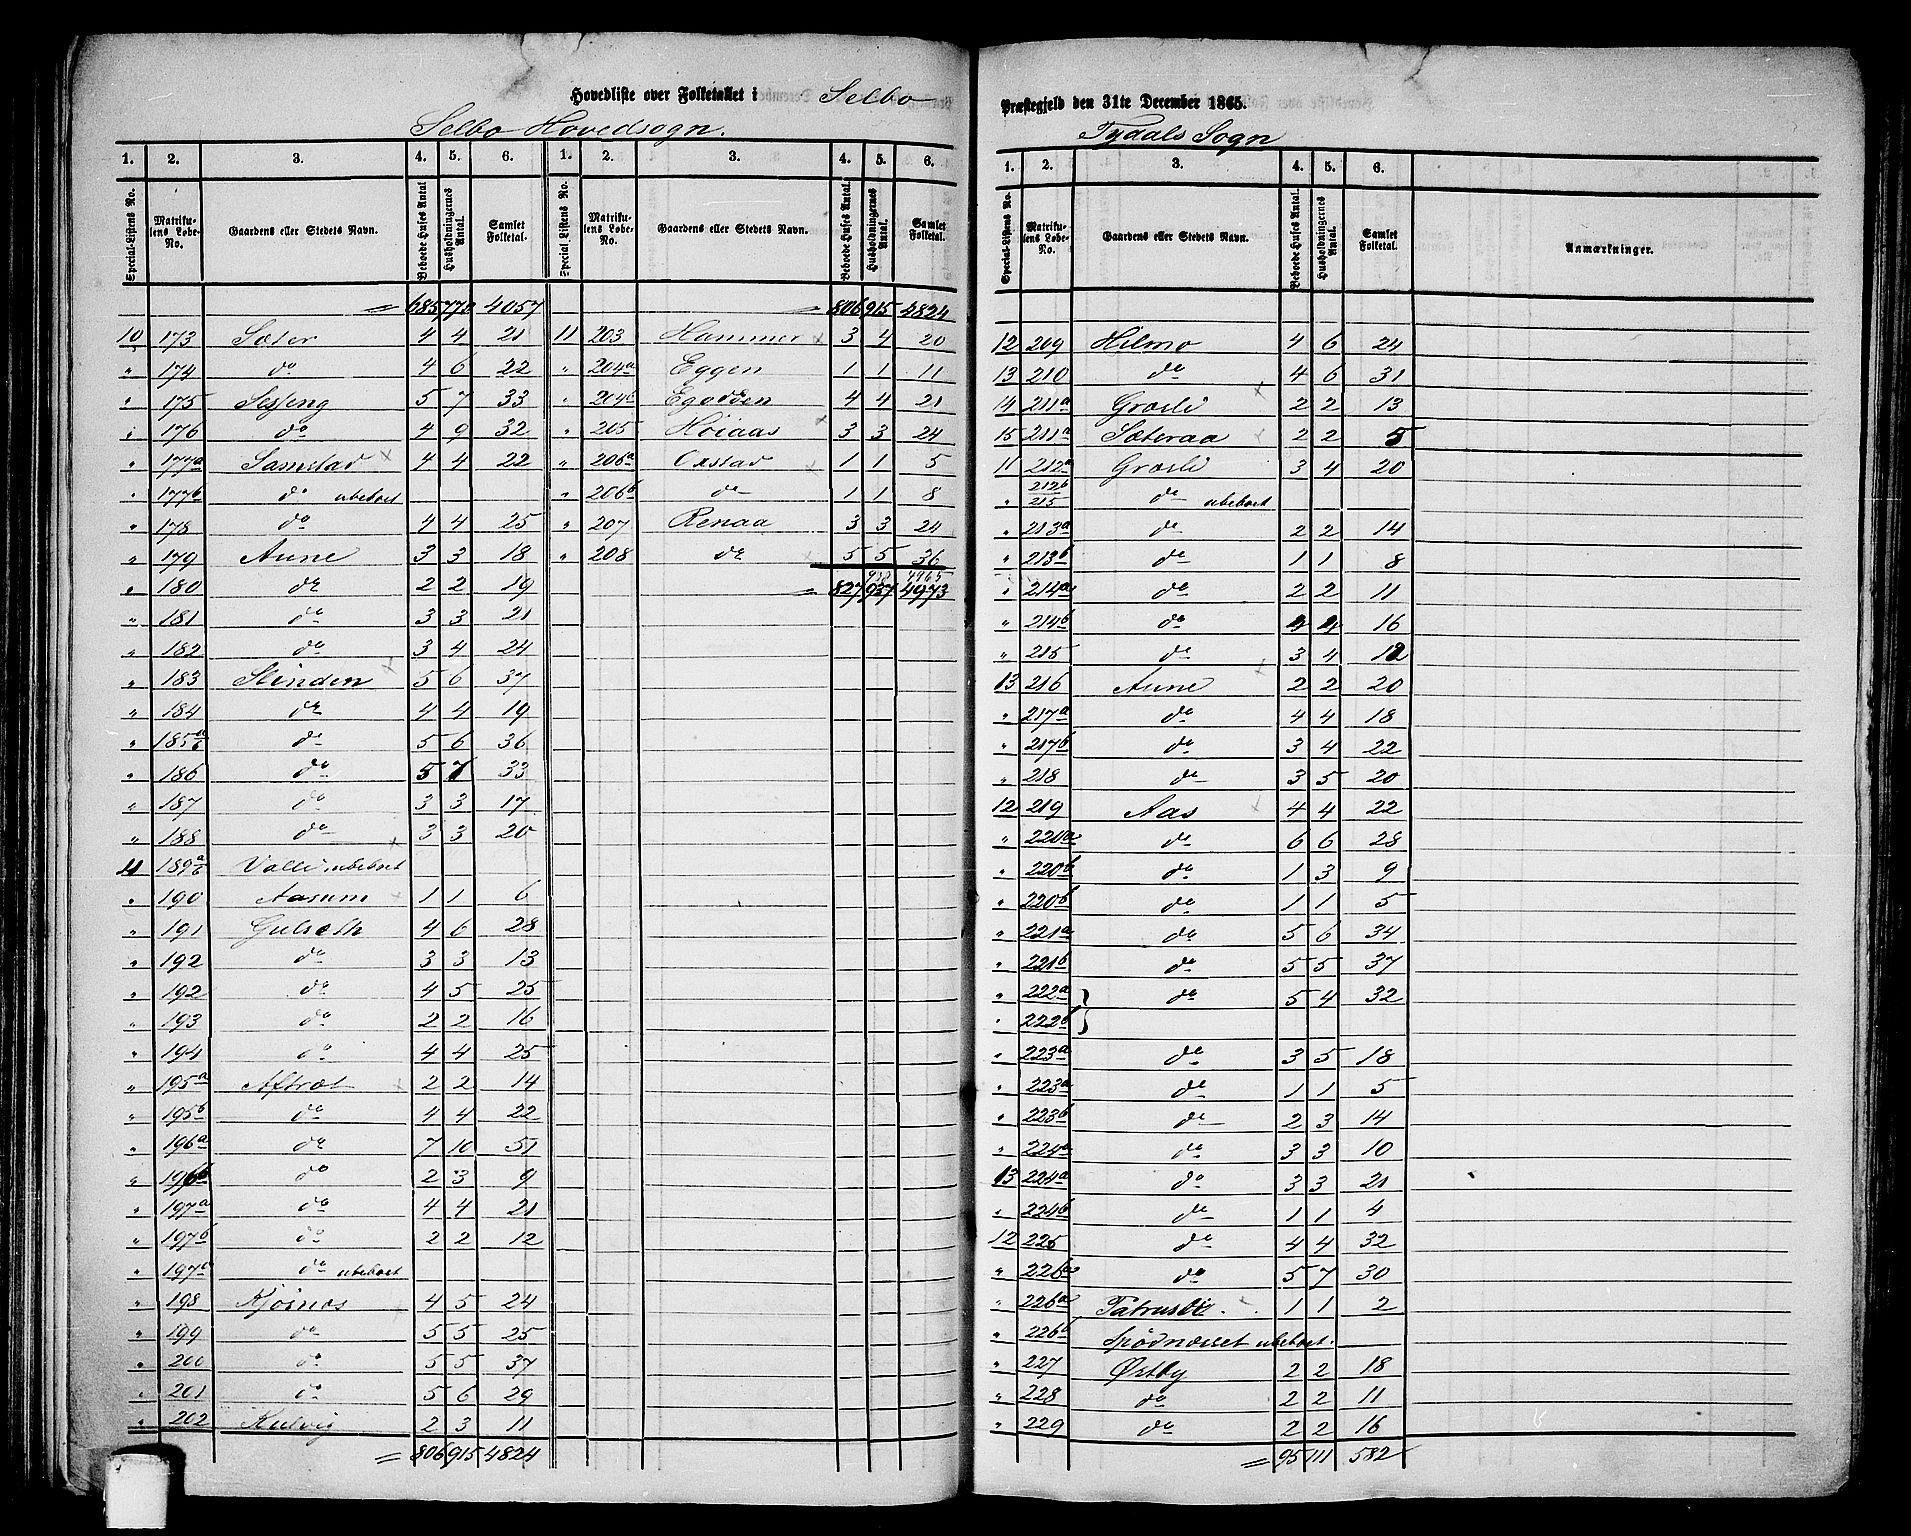 Hovedliste over Folketallet i Selbo
Selbo Hovedsogn.
1. 2. 3. 4. 5. 6.
Special-Listens No. Matrikulens Løbe-No. Gaardens eller Stedets Navn. Beboede Huses Antal Husholdningernes Antal. Samlet Folketal.
= 685 772 4057
10 173 Sæter 4 4 21
" 174 do 4 6 22
" 175 Sesseng 5 7 33
" 176 do 4 9 32
" 177a Samstad 4 4 22
" 177b do ubeboet
" 178 do 4 4 25
" 179 Aune 3 3 18
" 180 do 2 2 19
" 181 do 3 3 21
" 182 do 3 4 24
" 183 Slinden 5 6 37
" 184 do 4 4 19
" 185a/b do 5 6 36
" 186 do 5 7 33
" 187 do 3 3 17
" 188 do 3 3 20
11 189a/b Valli ubeboet
" 190 Aasum 1 1 6
" 191 Gulseth 4 6 28
" 192 do 3 3 13
" 192 do 4 5 25
" 193 do 2 2 16
" 194 do 4 4 25
" 195a Aftret 2 2 14
" 195b do 4 4 22
" 196a do 7 10 51
" 196b do 2 3 9
" 197a do 4 4 21
" 197b do 2 2 12
" 197a do ubeboet
" 198 Kjøsnes 4 5 24
" 199 do 5 5 25
" 200 do 5 5 37
" 201 do 5 6 29
" 202 Kulvig 2 3 11
= 806 915 4824
1. 2. 3. 4. 5. 6.
Special Listens No. Matrikulens Løbe-No. Gaardens eller Stedets Navn. Beboede Huses Antal. Husholdningernes Antal. Samlet Folketal.
= 806 915 4824
11 203 Hammer 3 4 20
" 204a Eggen 1 1 11
" 204b Egodden 4 4 21
" 205 Høiaas 3 3 24
" 206a Oxstad 1 1 5
" 206b do 1 1 8
" 207 Renaa 3 3 24
" 208 do 5 5 36
938 4965
= 827 937 4973
Præstegjeld den 31te December 1865.
Tydals Sogn
1. 2. 3. 4. 5. 6.
Special-Listens No. Matrikulens Løbe-No. Gaardens eller Stedets Navn. Beboede Huses Antal. Husholdningernes Antal. Samlet Folketal. Anmærkninger.
12 209 Hilmo 4 6 24
13 210 do 4 6 31
14 211a Græsli 2 2 13
15 211a Sæteraa 2 2 5
11 212a Græsli 3 4 20
" 212b/215 do ubeboet
" 213a do 2 2 14
" 213b do 1 1 8
" 214a do 2 2 11
" 214b do 4 4 16
" 215 do 3 4 12
13 216 Aune 2 2 20
" 217a do 4 4 18
" 217b do 3 4 22
" 218 do 3 5 20
12 219 Aas 4 4 22
" 220a do 6 6 28
" 220b do 1 3 9
" 220b do 1 1 5
" 221a do 5 6 34
" 221b do 5 5 37
" 222a } do 5 4 32
" 222b }
" 223a do 3 5 18
" 223a do 1 1 5
" 223b do 2 3 14
" 224a do 3 3 10
13 224a do 3 3 21
" 224b do 1 1 4
12 225 do 4 4 32
" 226a do 5 7 30
" 226a 1 1 2
" 226b ubeboet.
" 227 Østby 2 2 18
" 228 do 2 2 11
" 229 do 2 2 16
= 95 111 582